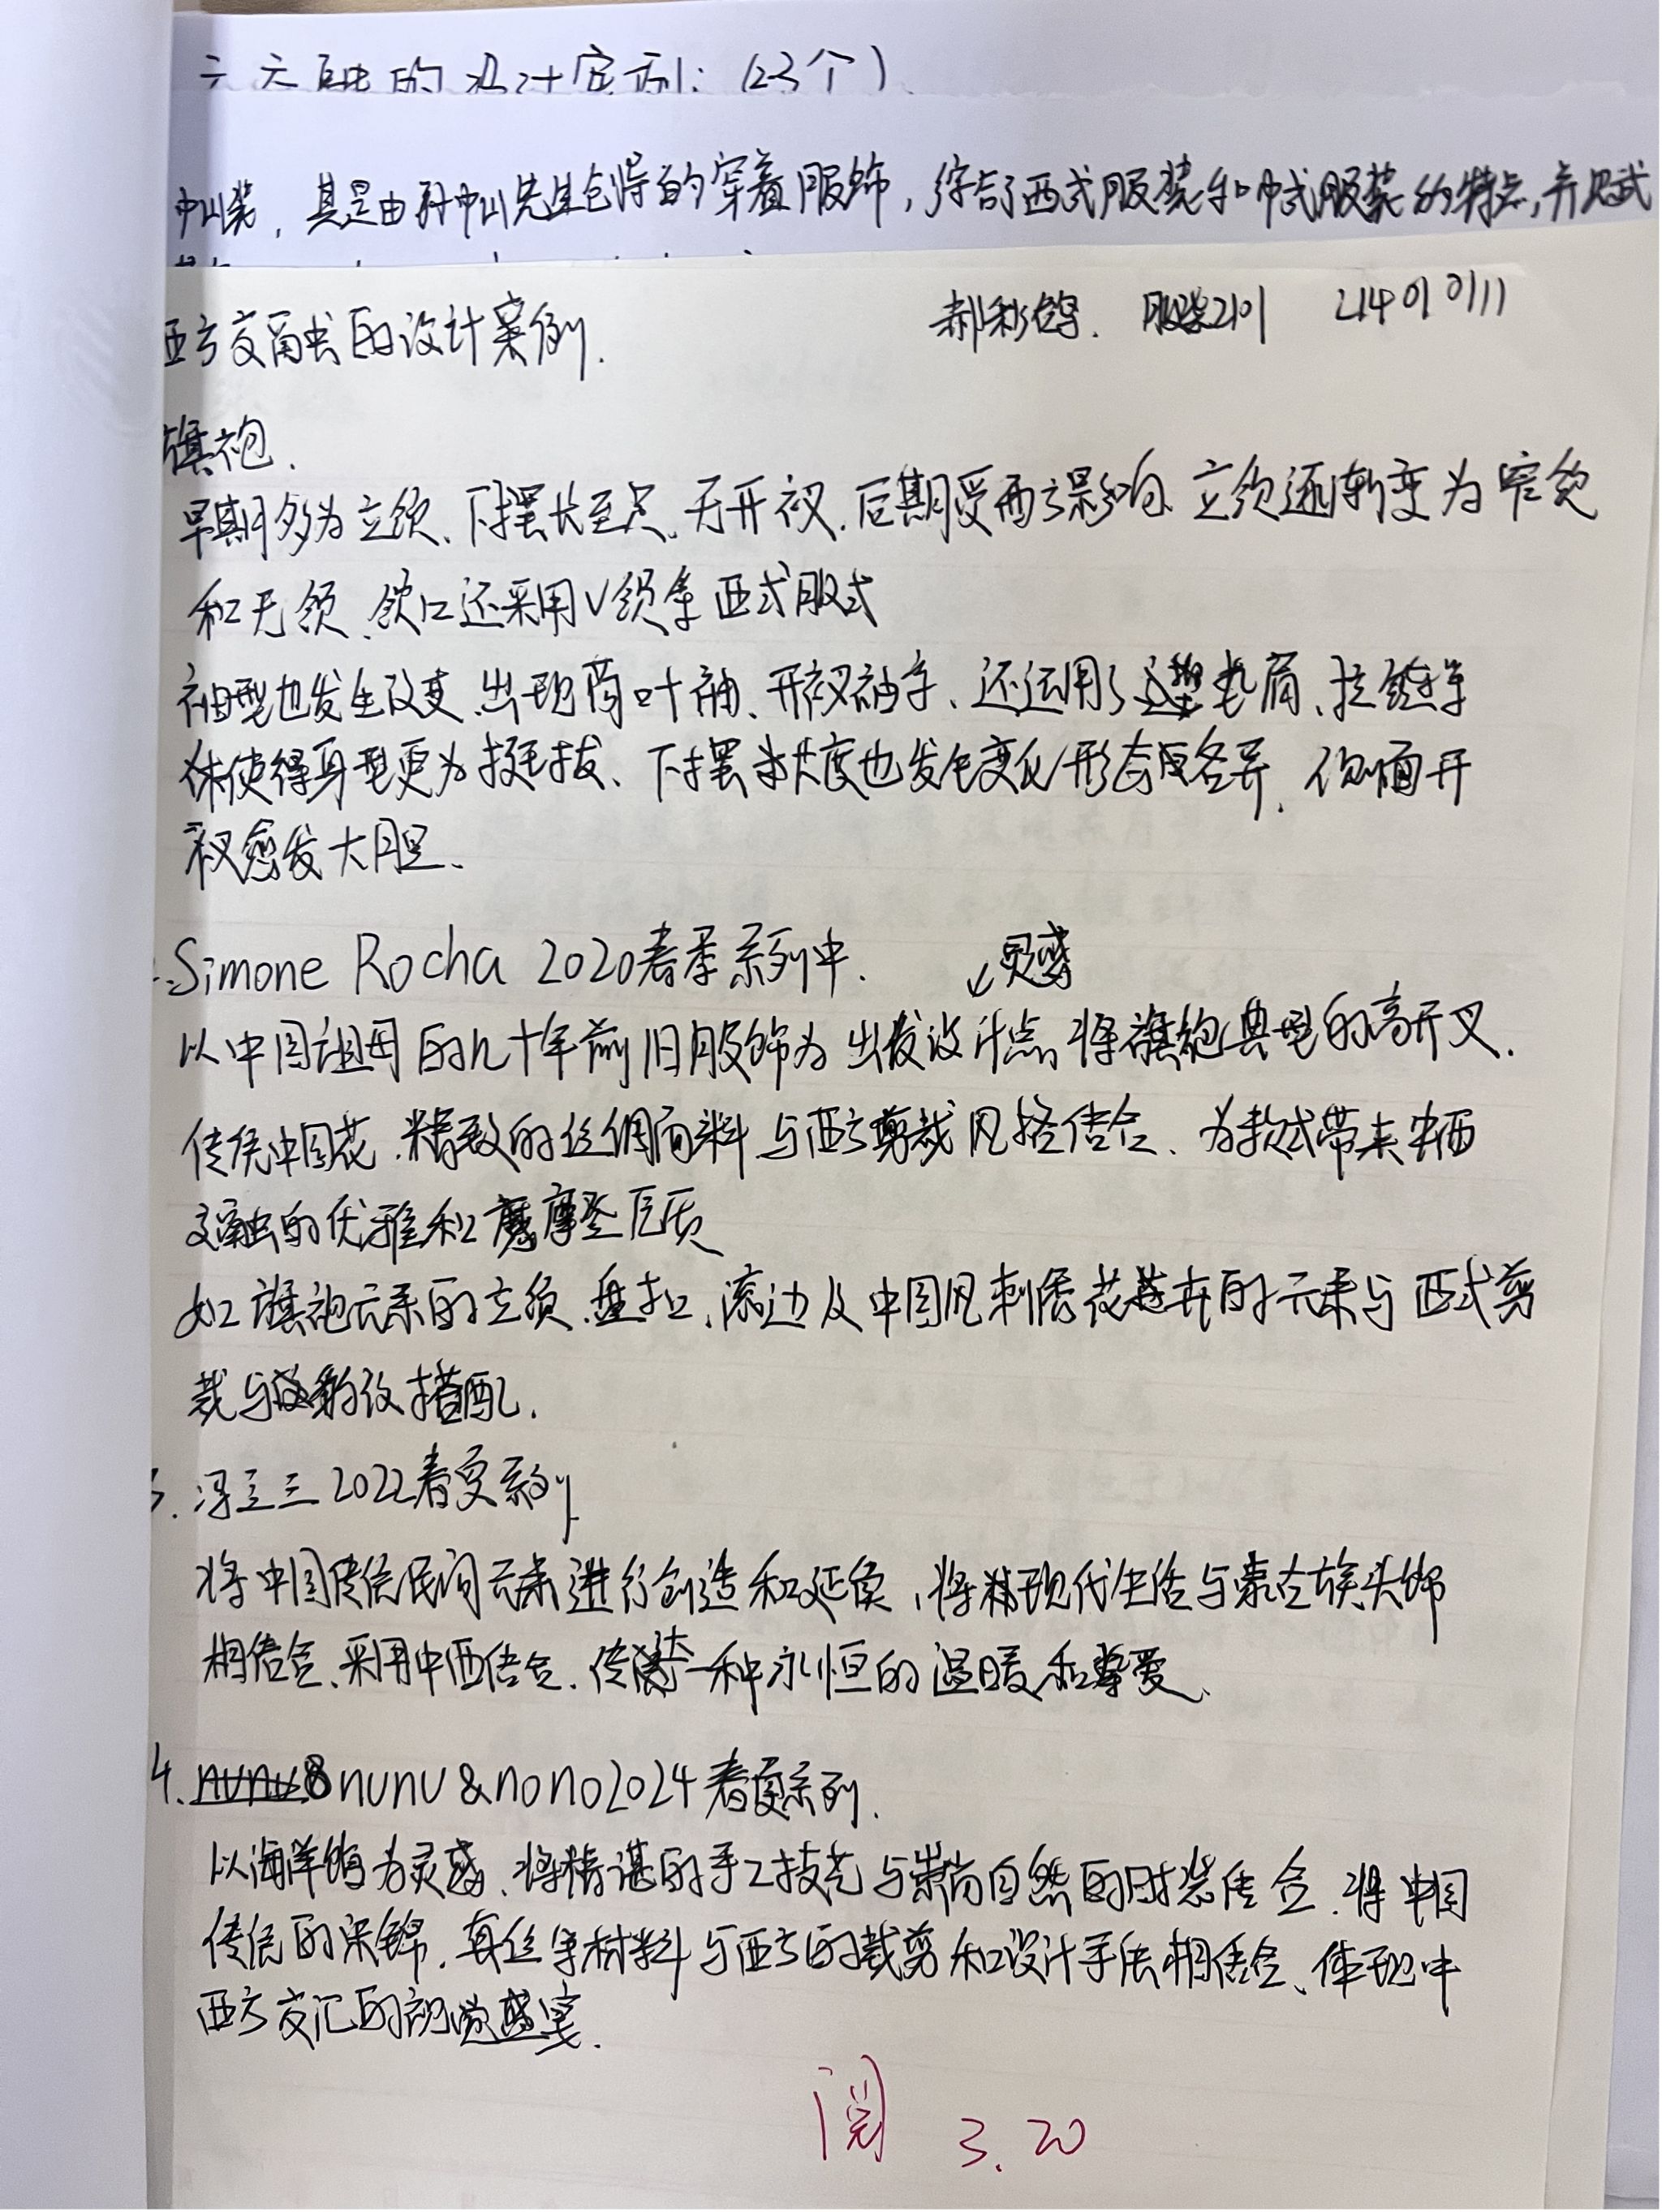 方交融的设计案例：（2-3个）
中山装，其是由孙中山先生创导的穿着服饰，综合了西式服装和中式服装的特点，并
西方交融的设计案例.
服装2101 214010111
旗袍.
早期多为立领、下摆长至足、无开衩.后期受西方影响、立领逐渐变为窄领
和无领、领口还采用V领等西式服式
袖型也发生改变、出现荷叶袖、开衩袖等、还运用了垫肩、拉链等
体使得身型更为挺拔、下摆长度也发生变化形态各异、侧面开
衩愈发大胆、
Simone Rocha 2020春季系列中.
灵感
以中国祖母的九十年前旧服饰为出发设计点、将旗袍典型的高开叉.
传统中国花.精致的丝绸面料与西方剪裁风格结合、为款式带来中西
交融的优雅和摩登气质
如旗袍元素的立领.盘扣、滚边及中国风刺绣花卉的元素与西式剪
裁与豹纹搭配.
3. 冯三三2022春夏系列
将中国传统民间元素进行创造和延续，将现代生活与蒙古族头饰
相结合、采用中西结合.传达一种永恒的温暖和挚爱、
4. nunu&nono2024春夏系列.
以海洋为灵感、将精湛的手工技艺与崇尚自然的时装结合.将中国
传统的宋锦.真丝等材料与西方的裁剪和设计手法相结合、体现中
西方交汇的视觉盛宴.
阅 3.20